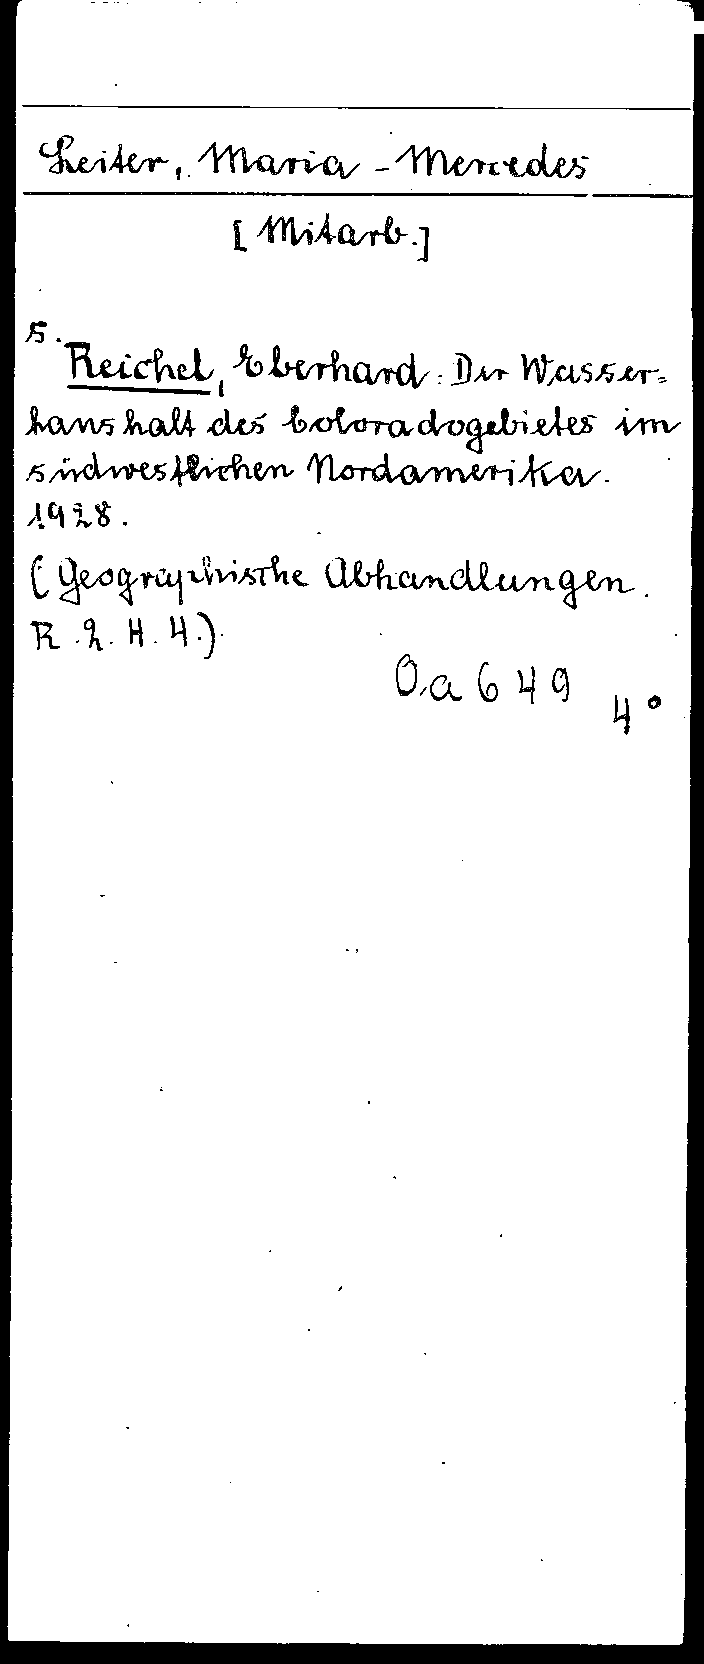 Leiter, Maria-Mercedes
[Mitarb.]
s.
Reichel, Eberhard: Der Wasser=
haushalt des Coloradogebietes im
südwestlichen Nordamerika.
1928.
(Geographische Abhandlungen.
R. 2. H. 4.)
Oa 649 4°